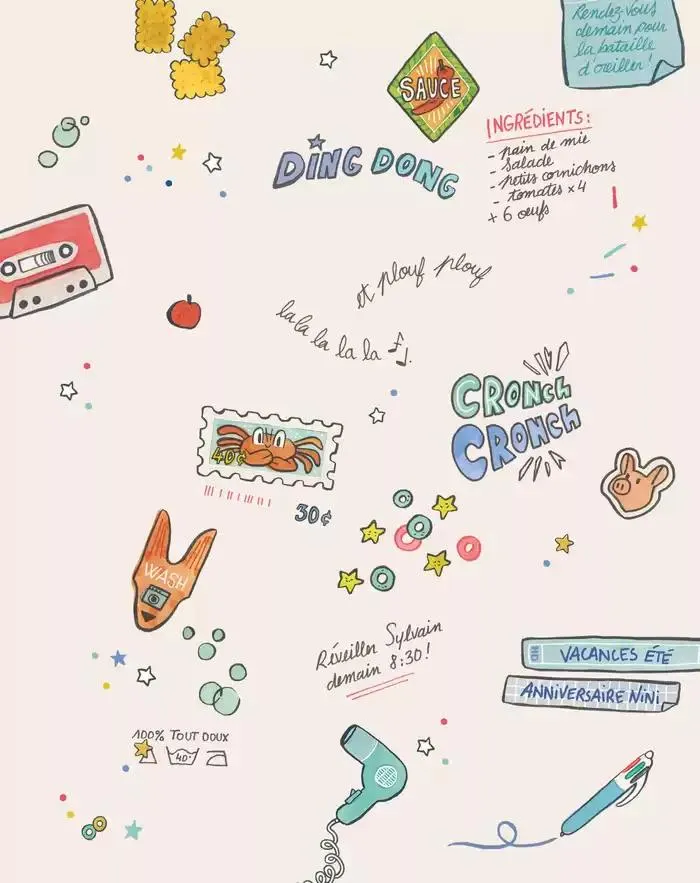 Rendez-vous
demain pour
la bataille
d'oreiller !
SAUCE
INGRÉDIENTS:
- pain de mie
- Salade
- petits cornichons
- tomates x4
+ 6 oeufs
DING DONG
et plouf plouf
la la la la la
CRONCH
CRONCH
40¢
30¢
WASH
Réveiller Sylvain
demain 8:30!
HD VACANCES ÉTÉ
ANNIVERSAIRE NINI
100% TOUT DOUX
40°